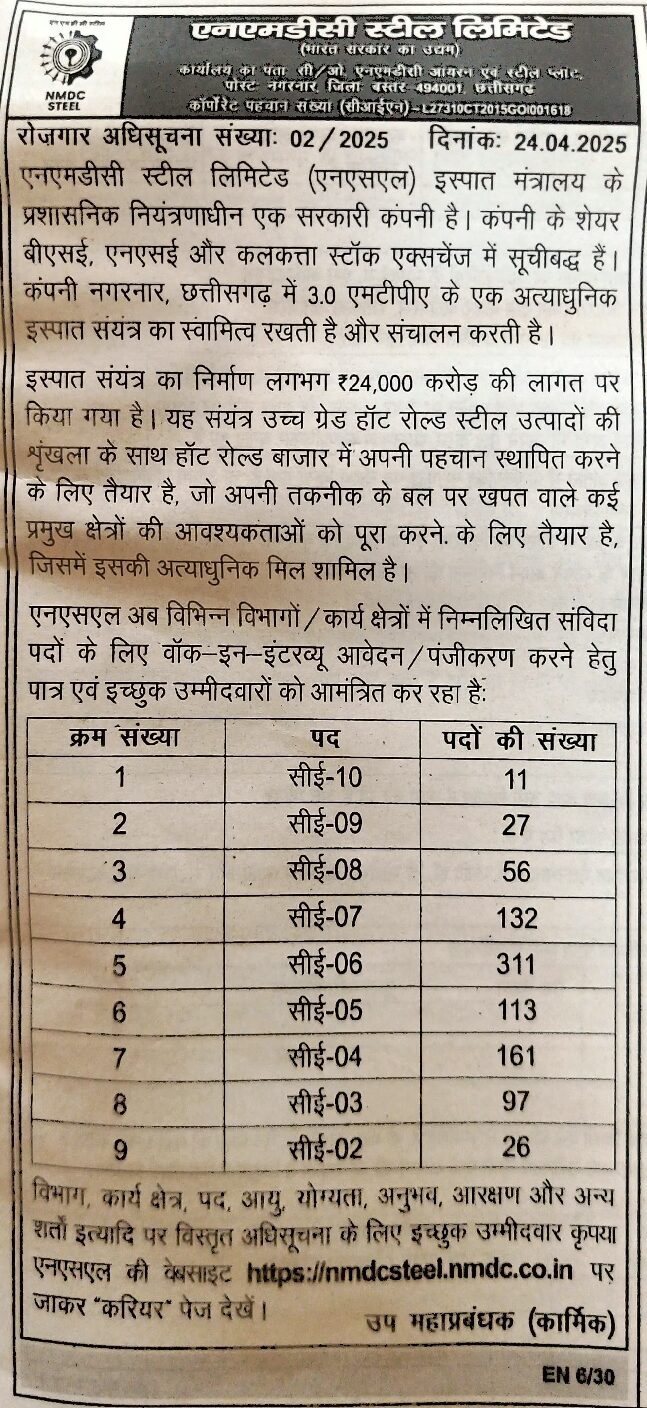 एन एम डी सी स्टील
NMDC
STEEL
एनएमडीसी स्टील लिमिटेड
(भारत सरकार का उद्यम)
कार्यालय का पता: सी/ओ. एनएमडीसी आयरन एवं स्टील प्लांट,
पोस्ट नगरनार जिला बस्तर 494001, छत्तीसगढ़
कॉर्पोरेट पहचान संख्या (सीआईएन)-L27310CT2015GOI001618
रोजगार अधिसूचना संख्याः 02/2025 दिनांकः 24.04.2025
एनएमडीसी स्टील लिमिटेड (एनएसएल) इस्पात मंत्रालय के
प्रशासनिक नियंत्रणाधीन एक सरकारी कंपनी है। कंपनी के शेयर
बीएसई, एनएसई और कलकत्ता स्टॉक एक्सचेंज में सूचीबद्ध हैं।
कंपनी नगरनार, छत्तीसगढ़ में 3.0 एमटीपीए के एक अत्याधुनिक
इस्पात संयंत्र का स्वामित्व रखती है और संचालन करती है।
इस्पात संयंत्र का निर्माण लगभग ₹24,000 करोड़ की लागत पर
किया गया है। यह संयंत्र उच्च ग्रेड हॉट रोल्ड स्टील उत्पादों की
शृंखला के साथ हॉट रोल्ड बाजार में अपनी पहचान स्थापित करने
के लिए तैयार है, जो अपनी तकनीक के बल पर खपत वाले कई
प्रमुख क्षेत्रों की आवश्यकताओं को पूरा करने. के लिए तैयार है,
जिसमें इसकी अत्याधुनिक मिल शामिल है।
एनएसएल अब विभिन्न विभागों/कार्य क्षेत्रों में निम्नलिखित संविदा
पदों के लिए वॉक-इन-इंटरव्यू आवेदन/पंजीकरण करने हेतु
पात्र एवं इच्छुक उम्मीदवारों को आमंत्रित कर रहा हैः
क्रम संख्या पद पदों की संख्या
1 सीई-10 11
2 सीई-09 27
3 सीई-08 56
4 सीई-07 132
5 सीई-06 311
6 सीई-05 113
7 सीई-04 161
8 सीई-03 97
9 सीई-02 26
विभाग, कार्य क्षेत्र, पद, आयु, योग्यता, अनुभव, आरक्षण और अन्य
शर्तों इत्यादि पर विस्तृत अधिसूचना के लिए इच्छुक उम्मीदवार कृपया
एनएसएल की वेबसाइट https://nmdcsteel.nmdc.co.in पर
जाकर "करियर" पेज देखें।
उप महाप्रबंधक (कार्मिक)
EN 6/30